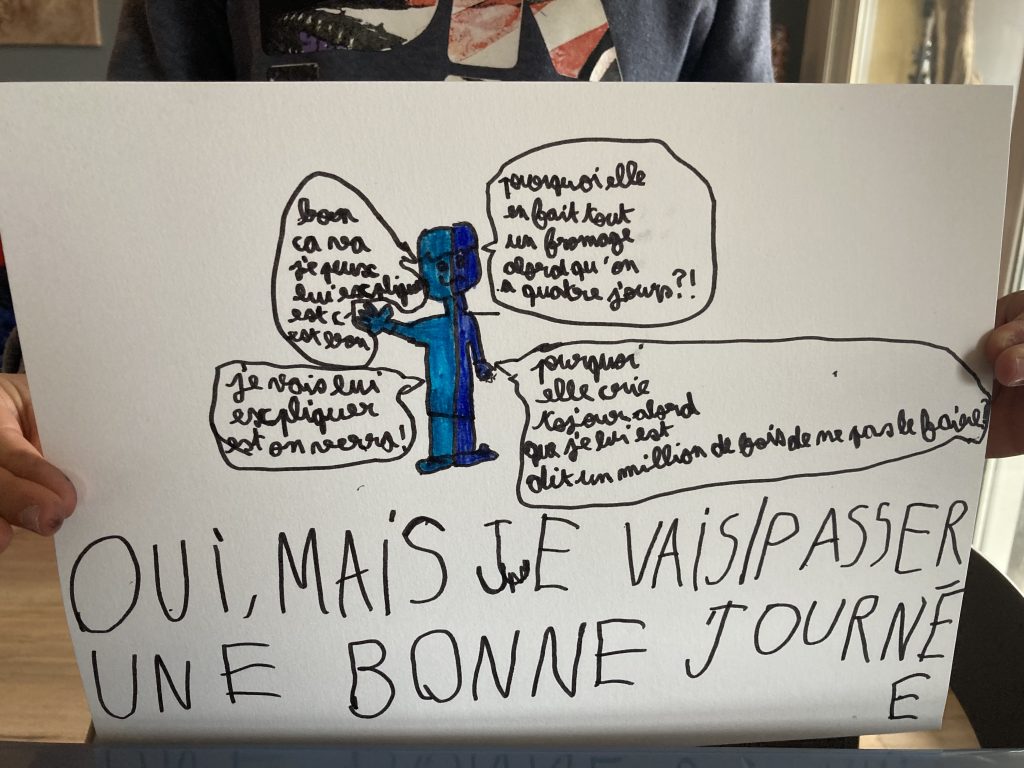 bon
ca va
je peux
lui expliquer
est c
est bon
pourquoi elle
en fait tout
un fromage
alord qu'on
a quatre jours?!
je vais lui
expliquer
est on verra!
pourquoi
elle crie
tojour alord
que je lui est
dit un million de fois de ne pas le faire!
OUI, MAIS JE VAIS/PASSER
UNE BONNE JOURNÉ
E